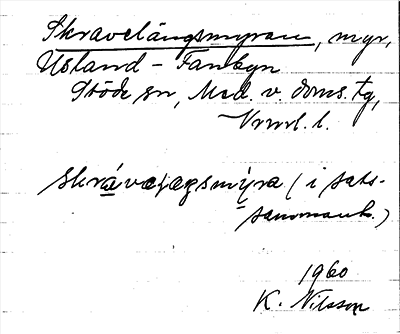 Skravelängsmyran, myr,
Usland - Fanbyn
Stöde sn, Med. v. doms. tg,
Vrnrl. l.
skrávelæŋsmỳra (i sats-
sammanh.)
1960
K. Nilsson